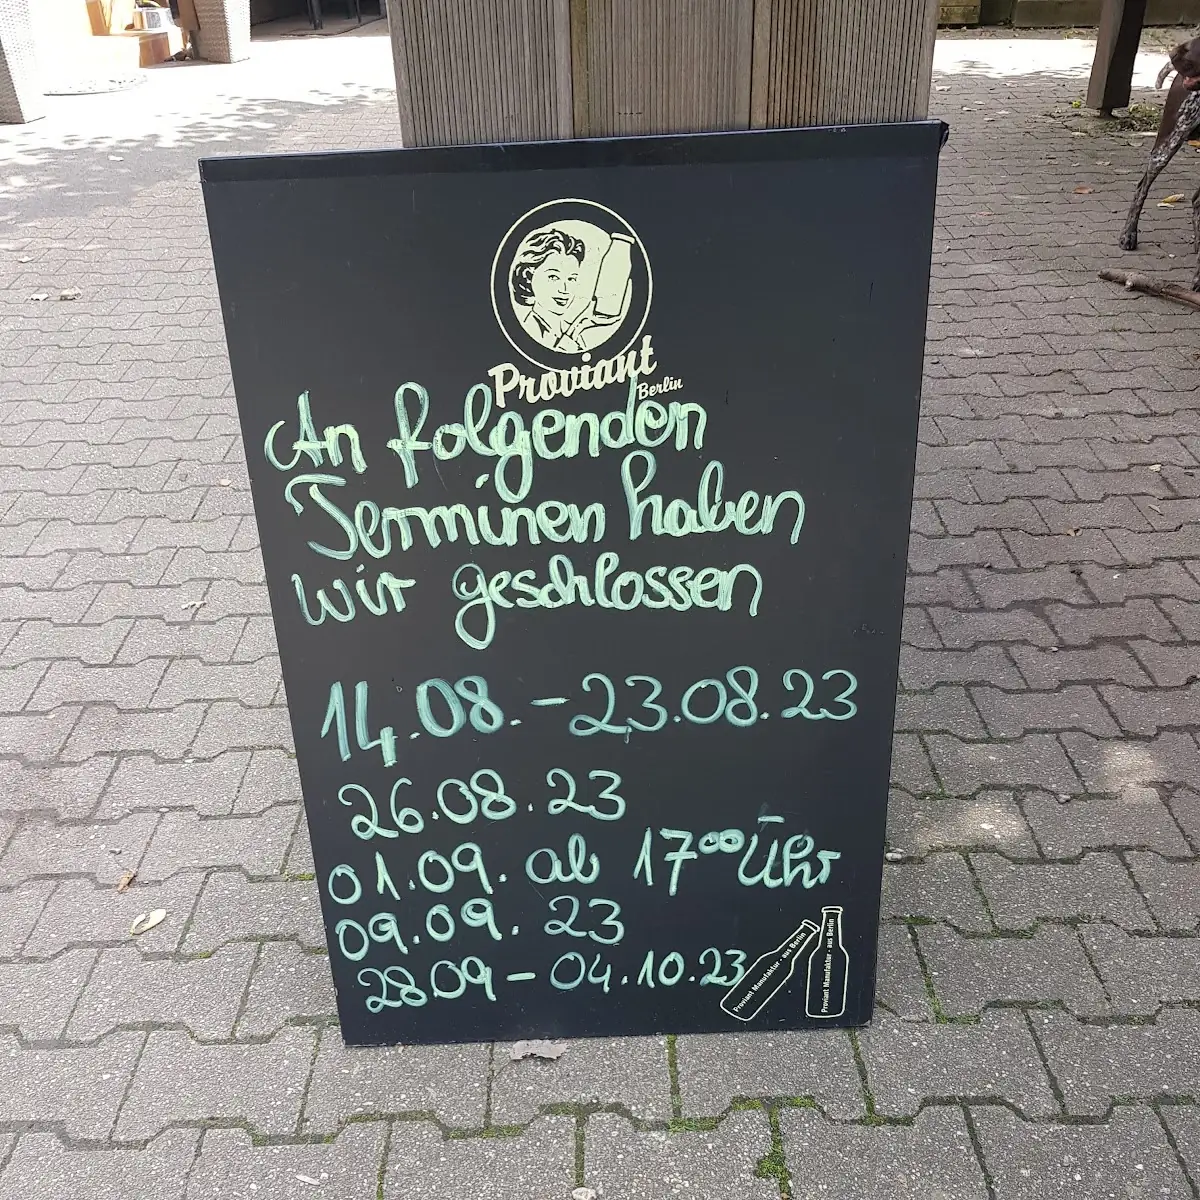 Proviant
Berlin
An folgenden
Terminen haben
wir geschlossen
14.08. - 23.08.23
26.08.23
01.09. ab 17⁰⁰ Uhr
09.09. 23
28.09 - 04.10.23
Proviant Manufaktur - aus Berlin
Proviant Manufaktur - aus Berlin